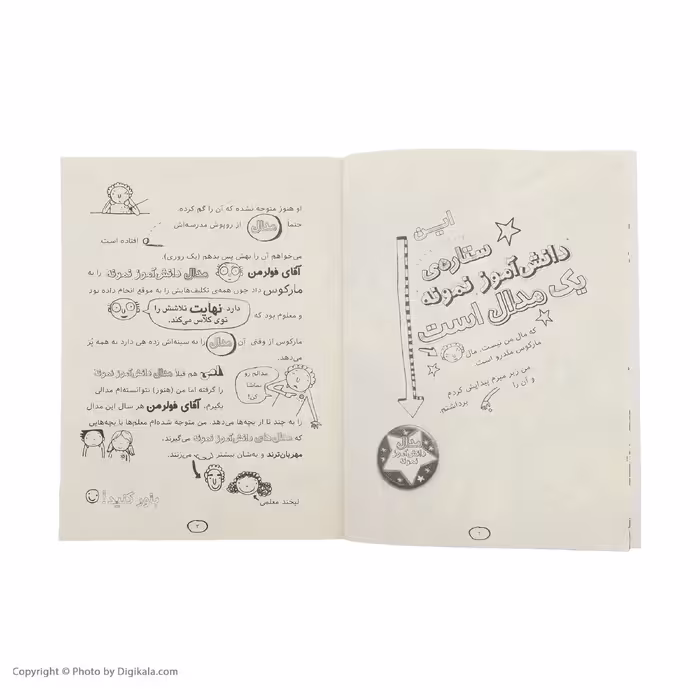 این
ستاره‌ی
دانش‌آموز نمونه
یک مدال است
که مال من نیست. مال
مارکوس ملدرو است
من زیر میزم پیدایش کردم
و آن را
برداشتم
مدال
دانش‌آموز
نمونه
۱
او هنوز متوجه نشده که آن را گم کرده.
حتما مدال از روپوش مدرسه‌اش
افتاده است.
می‌خواهم آن را بهش پس بدهم (یک روزی).
آقای فولرمن مدال دانش‌آموز نمونه را به
مارکوس داد چون همه‌ی تکلیف‌هایش را به موقع انجام داده بود
و معلوم بود که دارد نهایت تلاشش را
توی کلاس می‌کند.
مارکوس از وقتی آن مدال را به سینه‌اش زده هی دارد به همه پُز
می‌دهد.
مدالم رو
تماشا
کن!
هم قبلا مدال دانش‌آموز نمونه
را گرفته اما من (هنوز) نتوانسته‌ام مدالی
بگیرم. آقای فولرمن هر سال این مدال
را به چند تا از بچه‌ها می‌دهد. من متوجه شده‌ام معلم‌ها با بچه‌هایی
که مدال‌های دانش‌آموز نمونه می‌گیرند،
مهربان‌ترند و به‌شان بیشتر می‌زنند.
لبخند معلمی
باور کنید!
۲
Copyright © Photo by Digikala.com